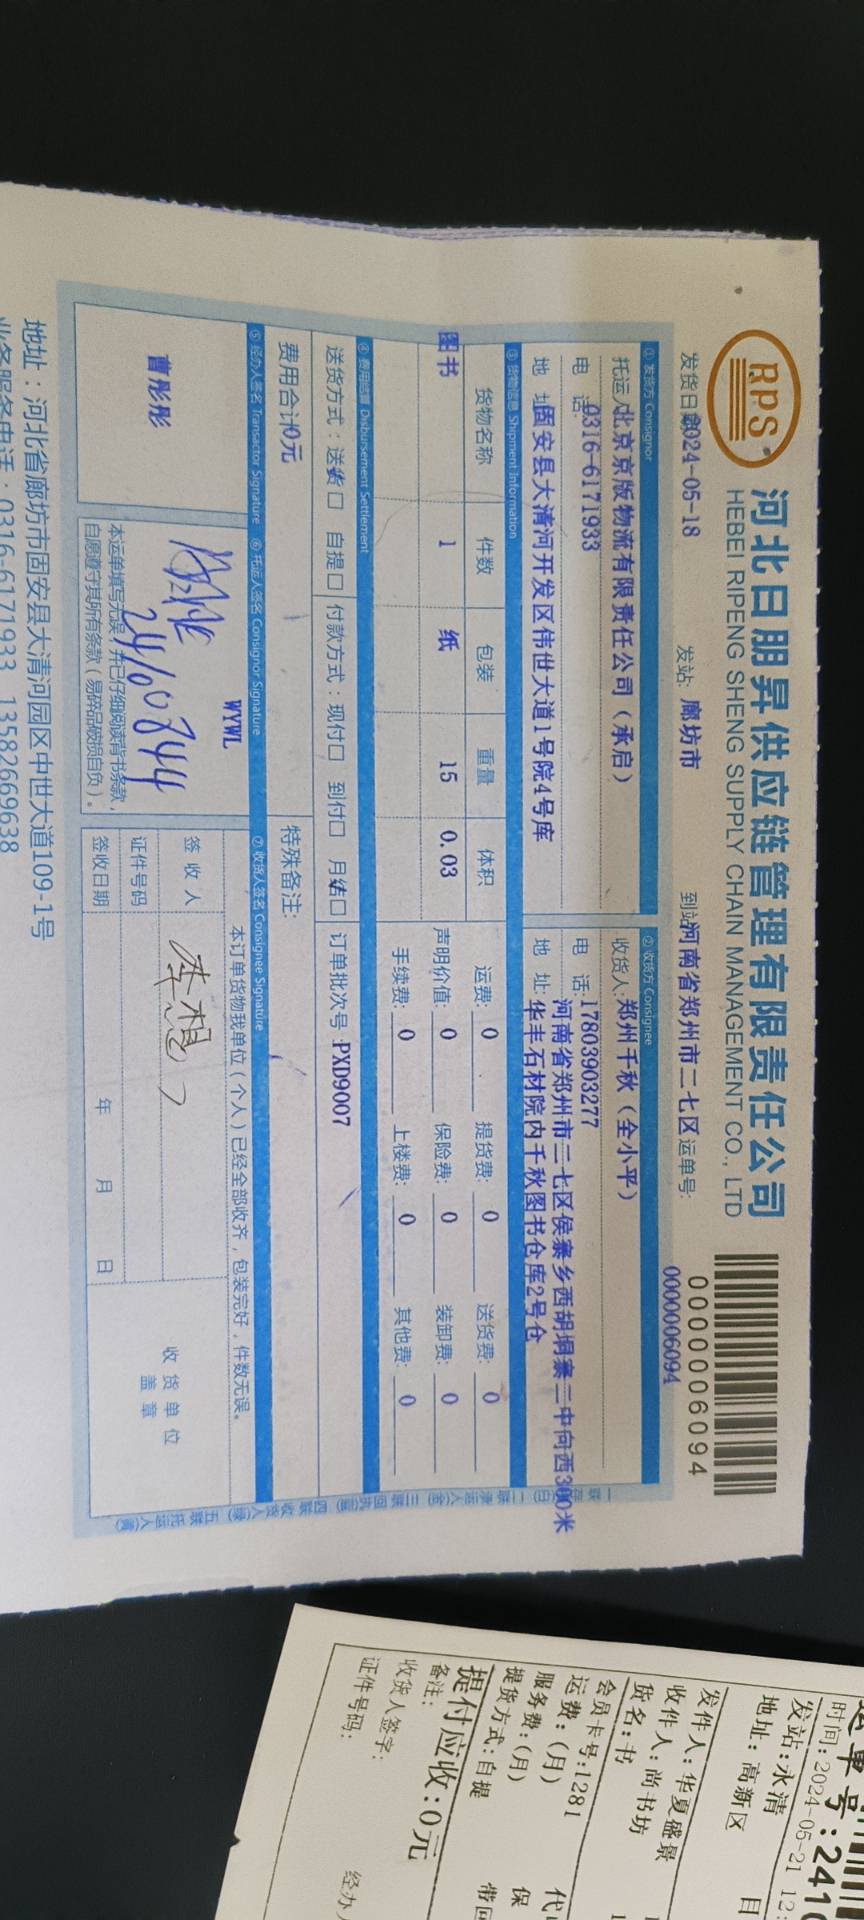 RPS
河北日朋昇供应链管理有限责任公司
HEBEI RIPENG SHENG SUPPLY CHAIN MANAGEMENT CO., LTD
0000006094
发货日期2024-05-18 发站: 廊坊市 到站河南省郑州市二七区 运单号: 0000006094
① 发货方 Consignor ② 收货方 Consignee
托运人北京京版物流有限责任公司（承启） 收货人: 郑州千秋（全小平）
电 话: 0316-6171933 电 话: 17803903277
地 址固安县大清河开发区伟世大道1号院4号库 地 址: 河南省郑州市二七区侯寨乡西胡垌寨二中向西300米
华丰石材院内千秋图书仓库2号仓
③ 货物信息 Shipment Information
货物名称 件数 包装 重量 体积 运费: 0 提货费: 0 送货费: 0
图书 1 纸 15 0.03 声明价值: 0 保险费: 0 装卸费: 0
手续费: 0 上楼费: 0 其他费: 0
④ 费用结算 Disbursement Settlement
送货方式: 送货 自提 付款方式: 现付 到付 月结 订单批次号: PXD9007
费用合计0元 特殊备注:
⑤ 经办人签名 Transactor Signature ⑥ 托运人签名 Consignor Signature ⑦ 收货人签名 Consignee Signature
曹彤彤 WYWL 本订单货物我单位(个人)已经全部收齐, 包装完好, 件数无误。
签 收 人 收 货 单 位
盖 章
证件号码
本运单填写无误, 并已仔细阅读背书条款,
自愿遵守其所有条款(易碎品破损自负)。
签收日期 年 月 日
地址: 河北省廊坊市固安县大清河园区中世大道109-1号
业务服务电话: 0316-6171933 13582669638
运单号:2410
时间:2024-05-21 12:
发站:永清
地址:高新区
发件人:华夏盛景
收件人:尚书坊
货名:书
会员卡号:1281
运费:(月)
服务费:(月) 保
提货方式:自提 带回
提付应收:0元
备注:
收货人签字:
证件号码: 经办人